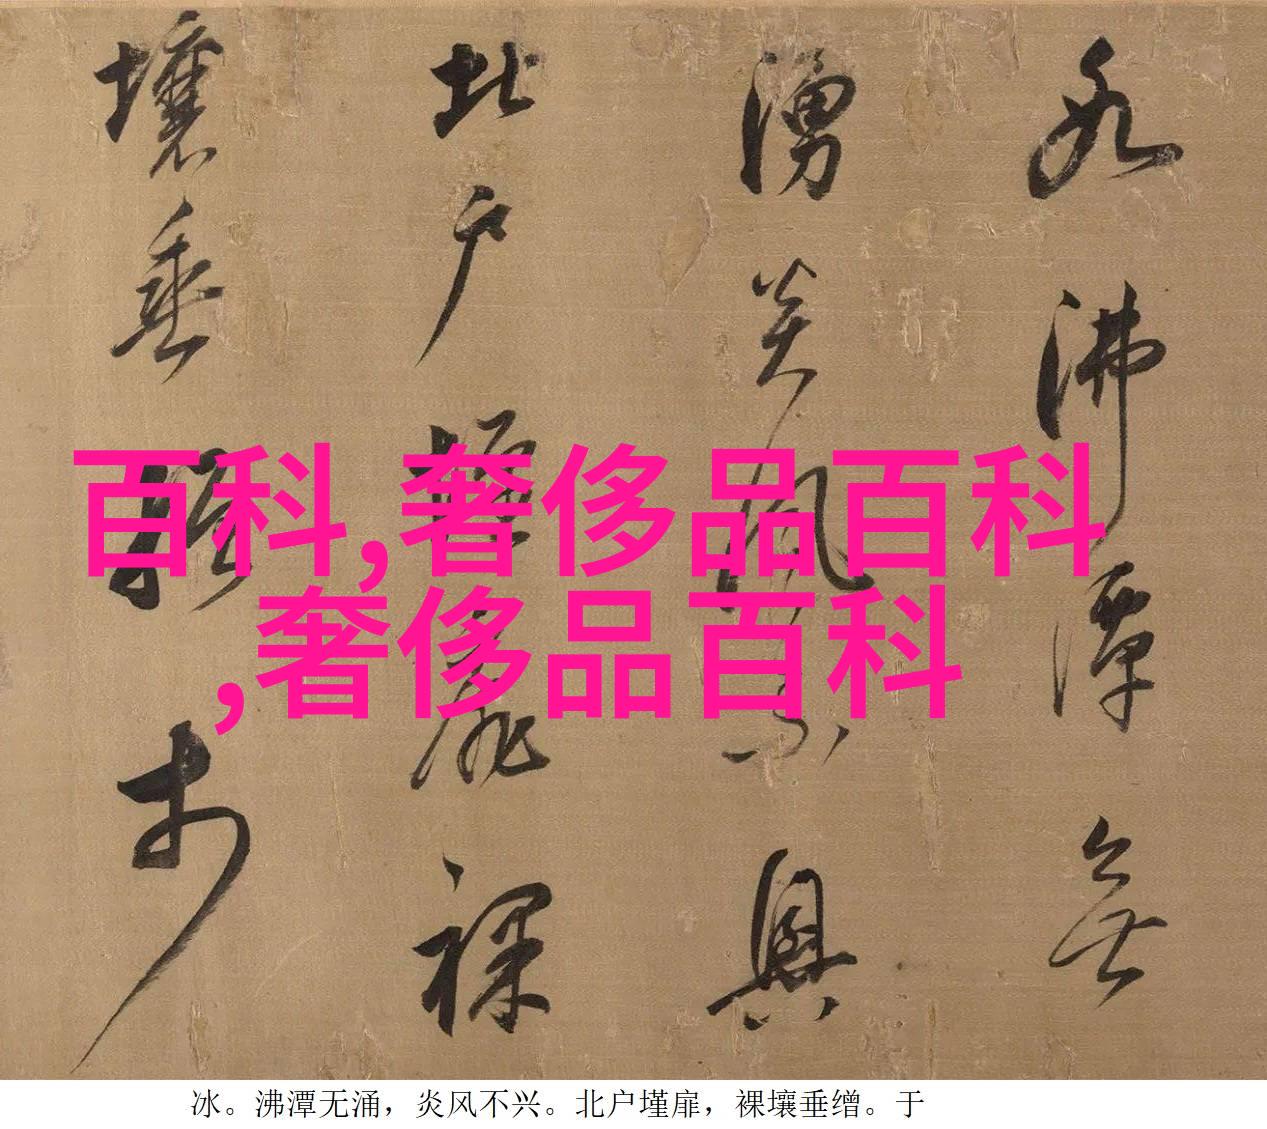 冰沸潭無
湧炎風不興
北户墐扉裸
壤垂繒於
百科,奢侈品百科
,奢侈品百科
冰。沸潭无涌，炎风不兴。北户墐扉，裸壤垂缯。于